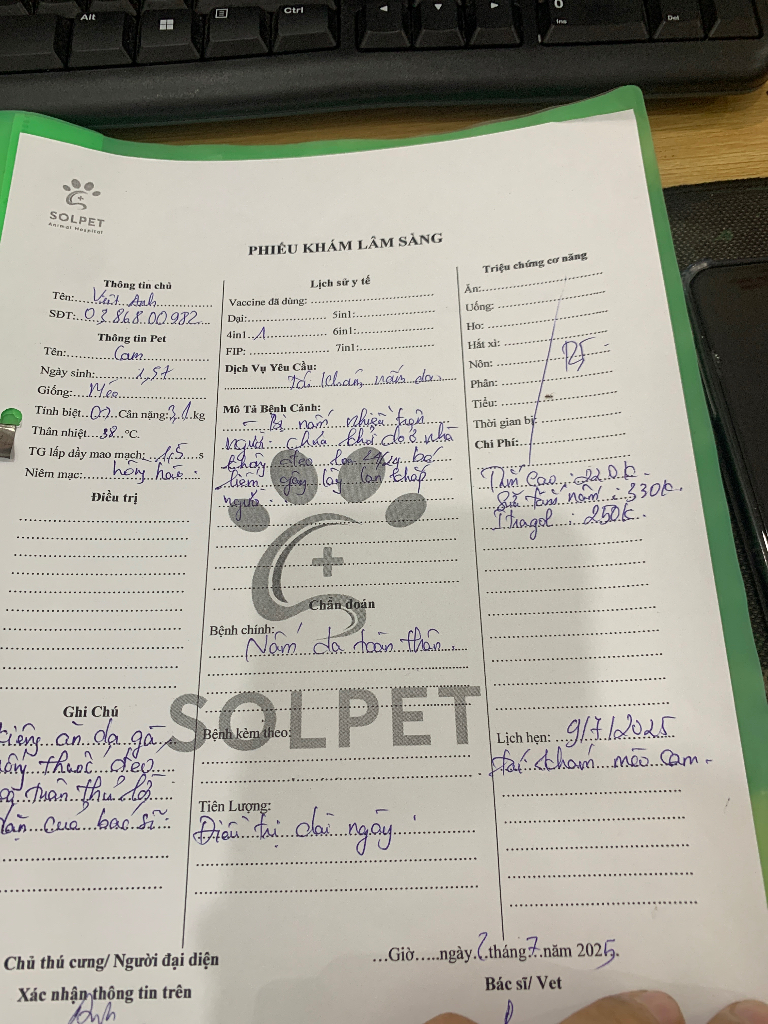 Alt
Ctrl
0
Ins
Del
SOLPET
Animal Hospital
PHIẾU KHÁM LÂM SÀNG
Thông tin chủ
Tên: Việt Anh
SĐT: 03.868.00.982
Thông tin Pet
Tên: Cam
Ngày sinh: 1,5T
Giống: Mèo
Tính biệt Cân nặng: 3,1 kg
Thân nhiệt 38 °C.
TG lấp đầy mao mạch: 1,5 s
Niêm mạc: hồng hào.
Điều trị
Ghi Chú
kiêng ăn da gà,
thuốc đeo
tuân thủ lời
dặn của bác sĩ.
Lịch sử y tế
Vaccine đã dùng:
Dại: 5in1:
4in1 1 6in1:
FIP: 7in1:
Dịch Vụ Yêu Cầu:
Tái khám nấm da
Mô Tả Bệnh Cảnh:
- Bị nấm nhiều trên
người. chưa khỏi do ở nhà
không đeo loa 24/24 bé
liếm gây lây lan khắp
người.
Chẩn đoán
Bệnh chính:
Nấm da toàn thân.
SOLPET
Bệnh kèm theo:
Tiên Lượng:
Điều trị dài ngày.
Triệu chứng cơ năng
Ăn:
Uống:
Ho:
Hắt xì:
Nôn:
Phân:
Tiểu:
Thời gian bị:
BT
Chi Phí:
Tắm cạo: 220k.
Sữa tắm nấm: 330k.
Itragol: 250k.
Lịch hẹn: 9/7/2025
tái khám mèo cam.
Chủ thú cưng/ Người đại diện
Xác nhận thông tin trên
Anh
...Giờ.....ngày 2 tháng 7 năm 2025.
Bác sĩ/ Vet